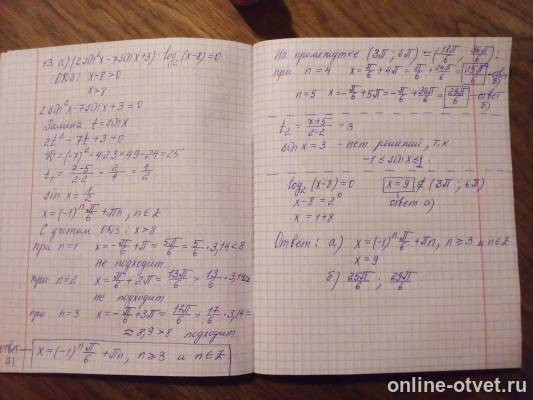 13. а) (2sin²x-7sinx+3)·log₂(x-8)=0
ОДЗ: x-8>0
x>8
2sin²x-7sinx+3=0
Замена t=sinx
2t²-7t+3=0
D=(-7)²-4·2·3=49-24=25
t₁=(7-5)/(2·2)=2/4=1/2
sinx=1/2
x=(-1)ⁿ π/6+πn, n∈Z
С учётом ОДЗ: x>8
при n=1 x=-π/6+π=5π/6=5/6·3,14<8
не подходит
при n=2 x=π/6+2π=13π/6=13/6·3,14<8
не подходит
при n=3 x=-π/6+3π=17π/6=17/6·3,14=
≈8,9>8 подходит
ответ а) x=(-1)ⁿ π/6+πn, n≥3 и n∈Z
На промежутке (3π; 6π)=(18π/6; 36π/6):
при n=4 x=π/6+4π=π/6+24π/6=25π/6 -ответ
n=5 x=-π/6+5π=-π/6+30π/6=29π/6 -ответ б)
t₂=(7+5)/(2·2)=3
sinx=3 -нет решений, т.к
-1≤sinx≤1
log₂(x-8)=0 x=9∉(3π; 6π)
x-8=2⁰ ответ а)
x=1+8
Ответ: а) x=(-1)ⁿ π/6+πn, n≥3 и n∈Z
x=9
б) 25π/6; 29π/6
online-otvet.ru